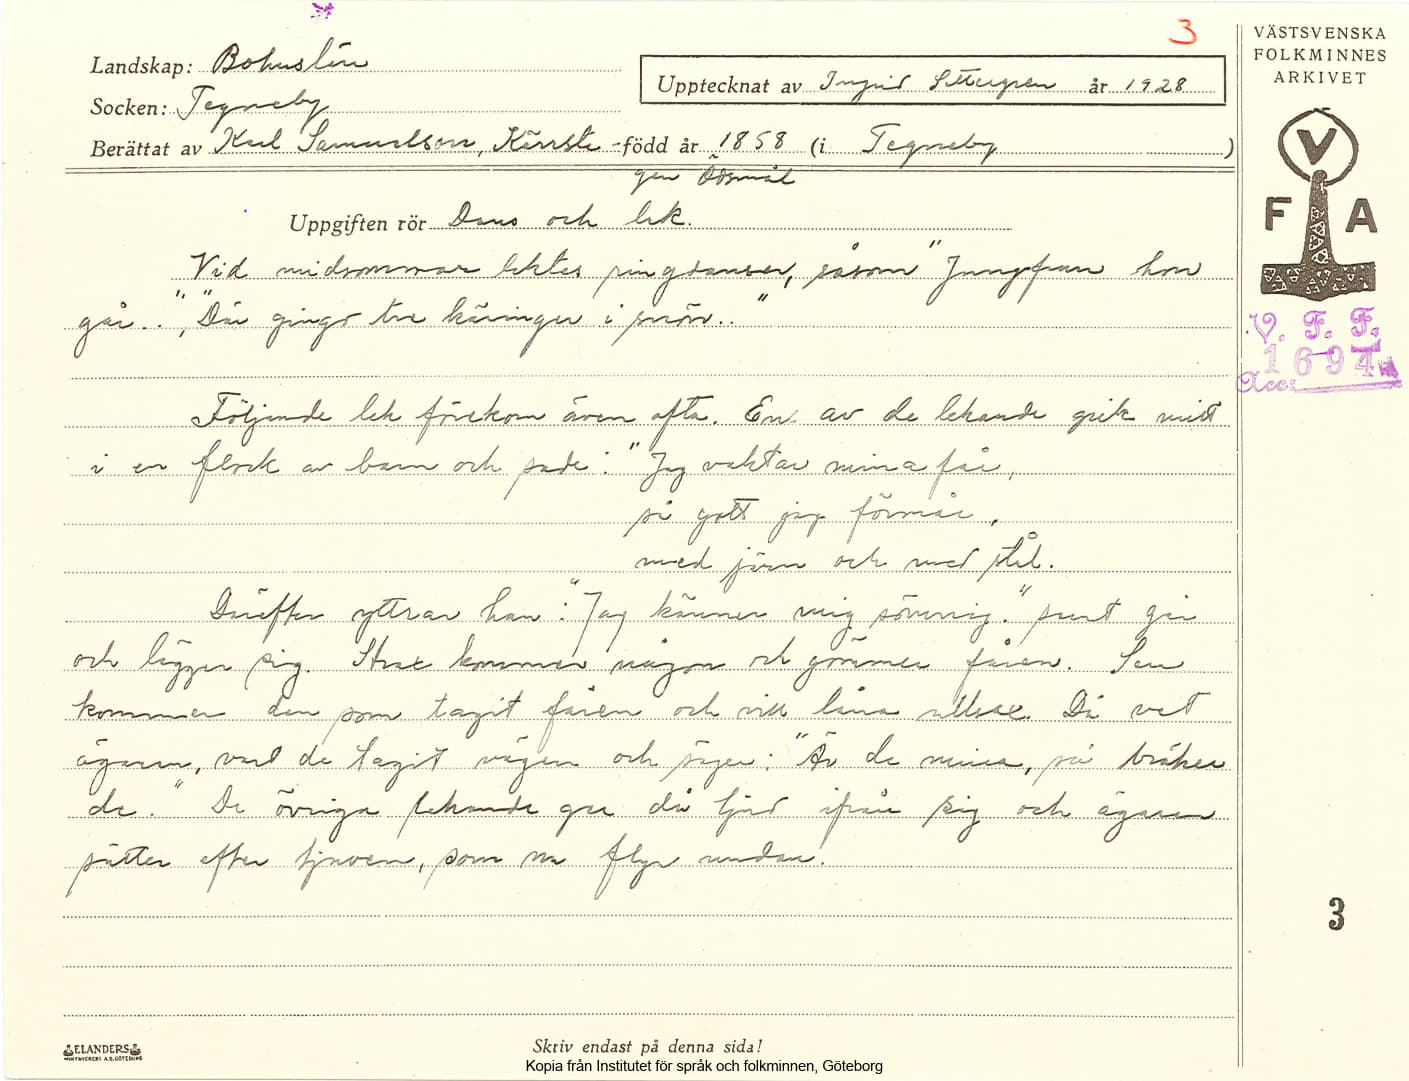 3
VÄSTSVENSKA
FOLKMINNES
ARKIVET
Landskap: Bohuslän
Upptecknat av Ingrid år 1928
Socken: Tegneby
Berättat av Karl Samuelson, född år 1858 (i Tegneby)
gen Ödsmål
Uppgiften rör Dans och lek.
Vid midsommar lektes ringdanser, såsom "Jungfrun hon
går..", "Där gingo tre käringer i snön.."
Följande lek förekom även ofta. En av de lekande gick mitt
i en flock av barn och sade: "Jag vaktar mina får,
så gott jag förmår,
med järn och med stål.
Därefter yttrar han: "Jag känner mig sömnig." samt går
och lägger sig. Strax kommer någon och gömmer fåren. Sen
kommer den som tagit fåren och vill låna ullsax. Då vet
ägaren, vart de tagit vägen och säger: "Är de mina, så bräker
de." De övriga lekande ger då ljud ifrån sig och ägaren
sätter efter tjuven, som nu flyr undan.
V
F A
V. F. F.
Acc: 1694
3
ELANDERS
Skriv endast på denna sida!
Kopia från Institutet för språk och folkminnen, Göteborg